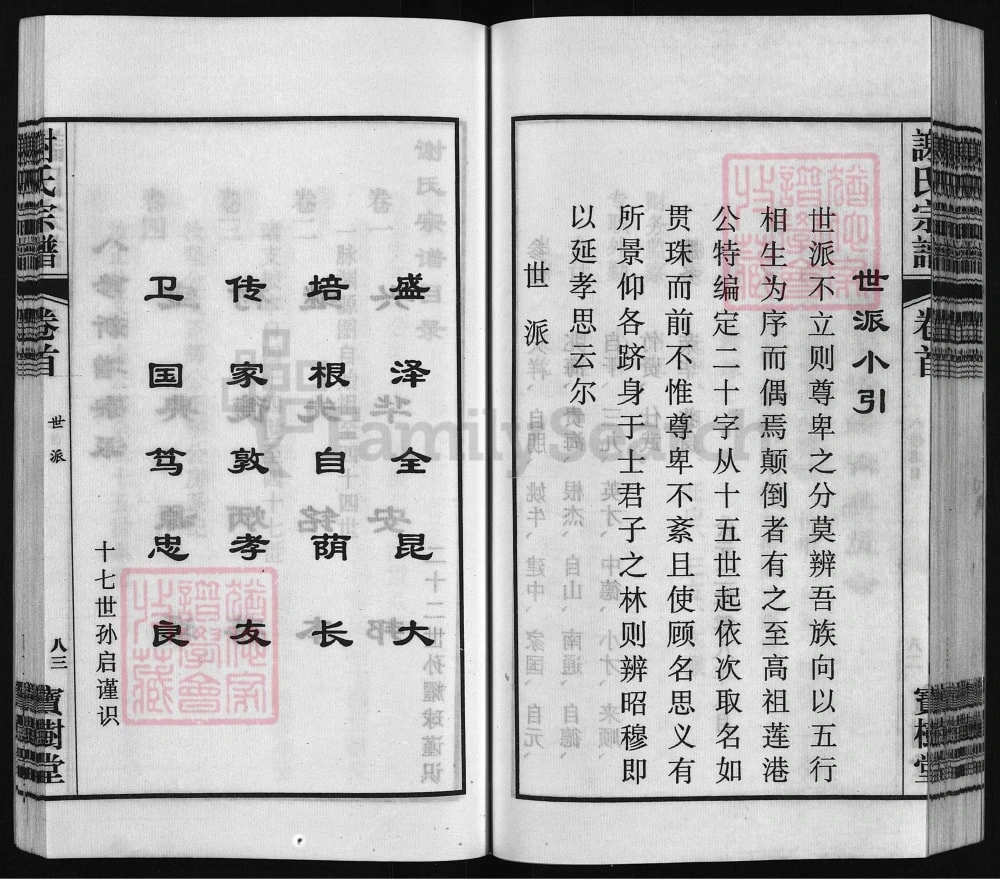 謝氏宗譜
卷首
寶樹堂
世派小引
世派不立则尊卑之分莫辨吾族向以五行
相生为序而偶焉颠倒者有之至高祖莲港
公特编定二十字从十五世起依次取名如
贯珠而前不惟尊卑不紊且使顾名思义有
所景仰各跻身于士君子之林则辨昭穆即
以延孝思云尔
世派
盛泽全昆大
培根自荫长
传家敦孝友
卫国笃忠良
十七世孙启谨识
謝氏宗譜
卷首
世派
八三
寶樹堂
FamilySearch